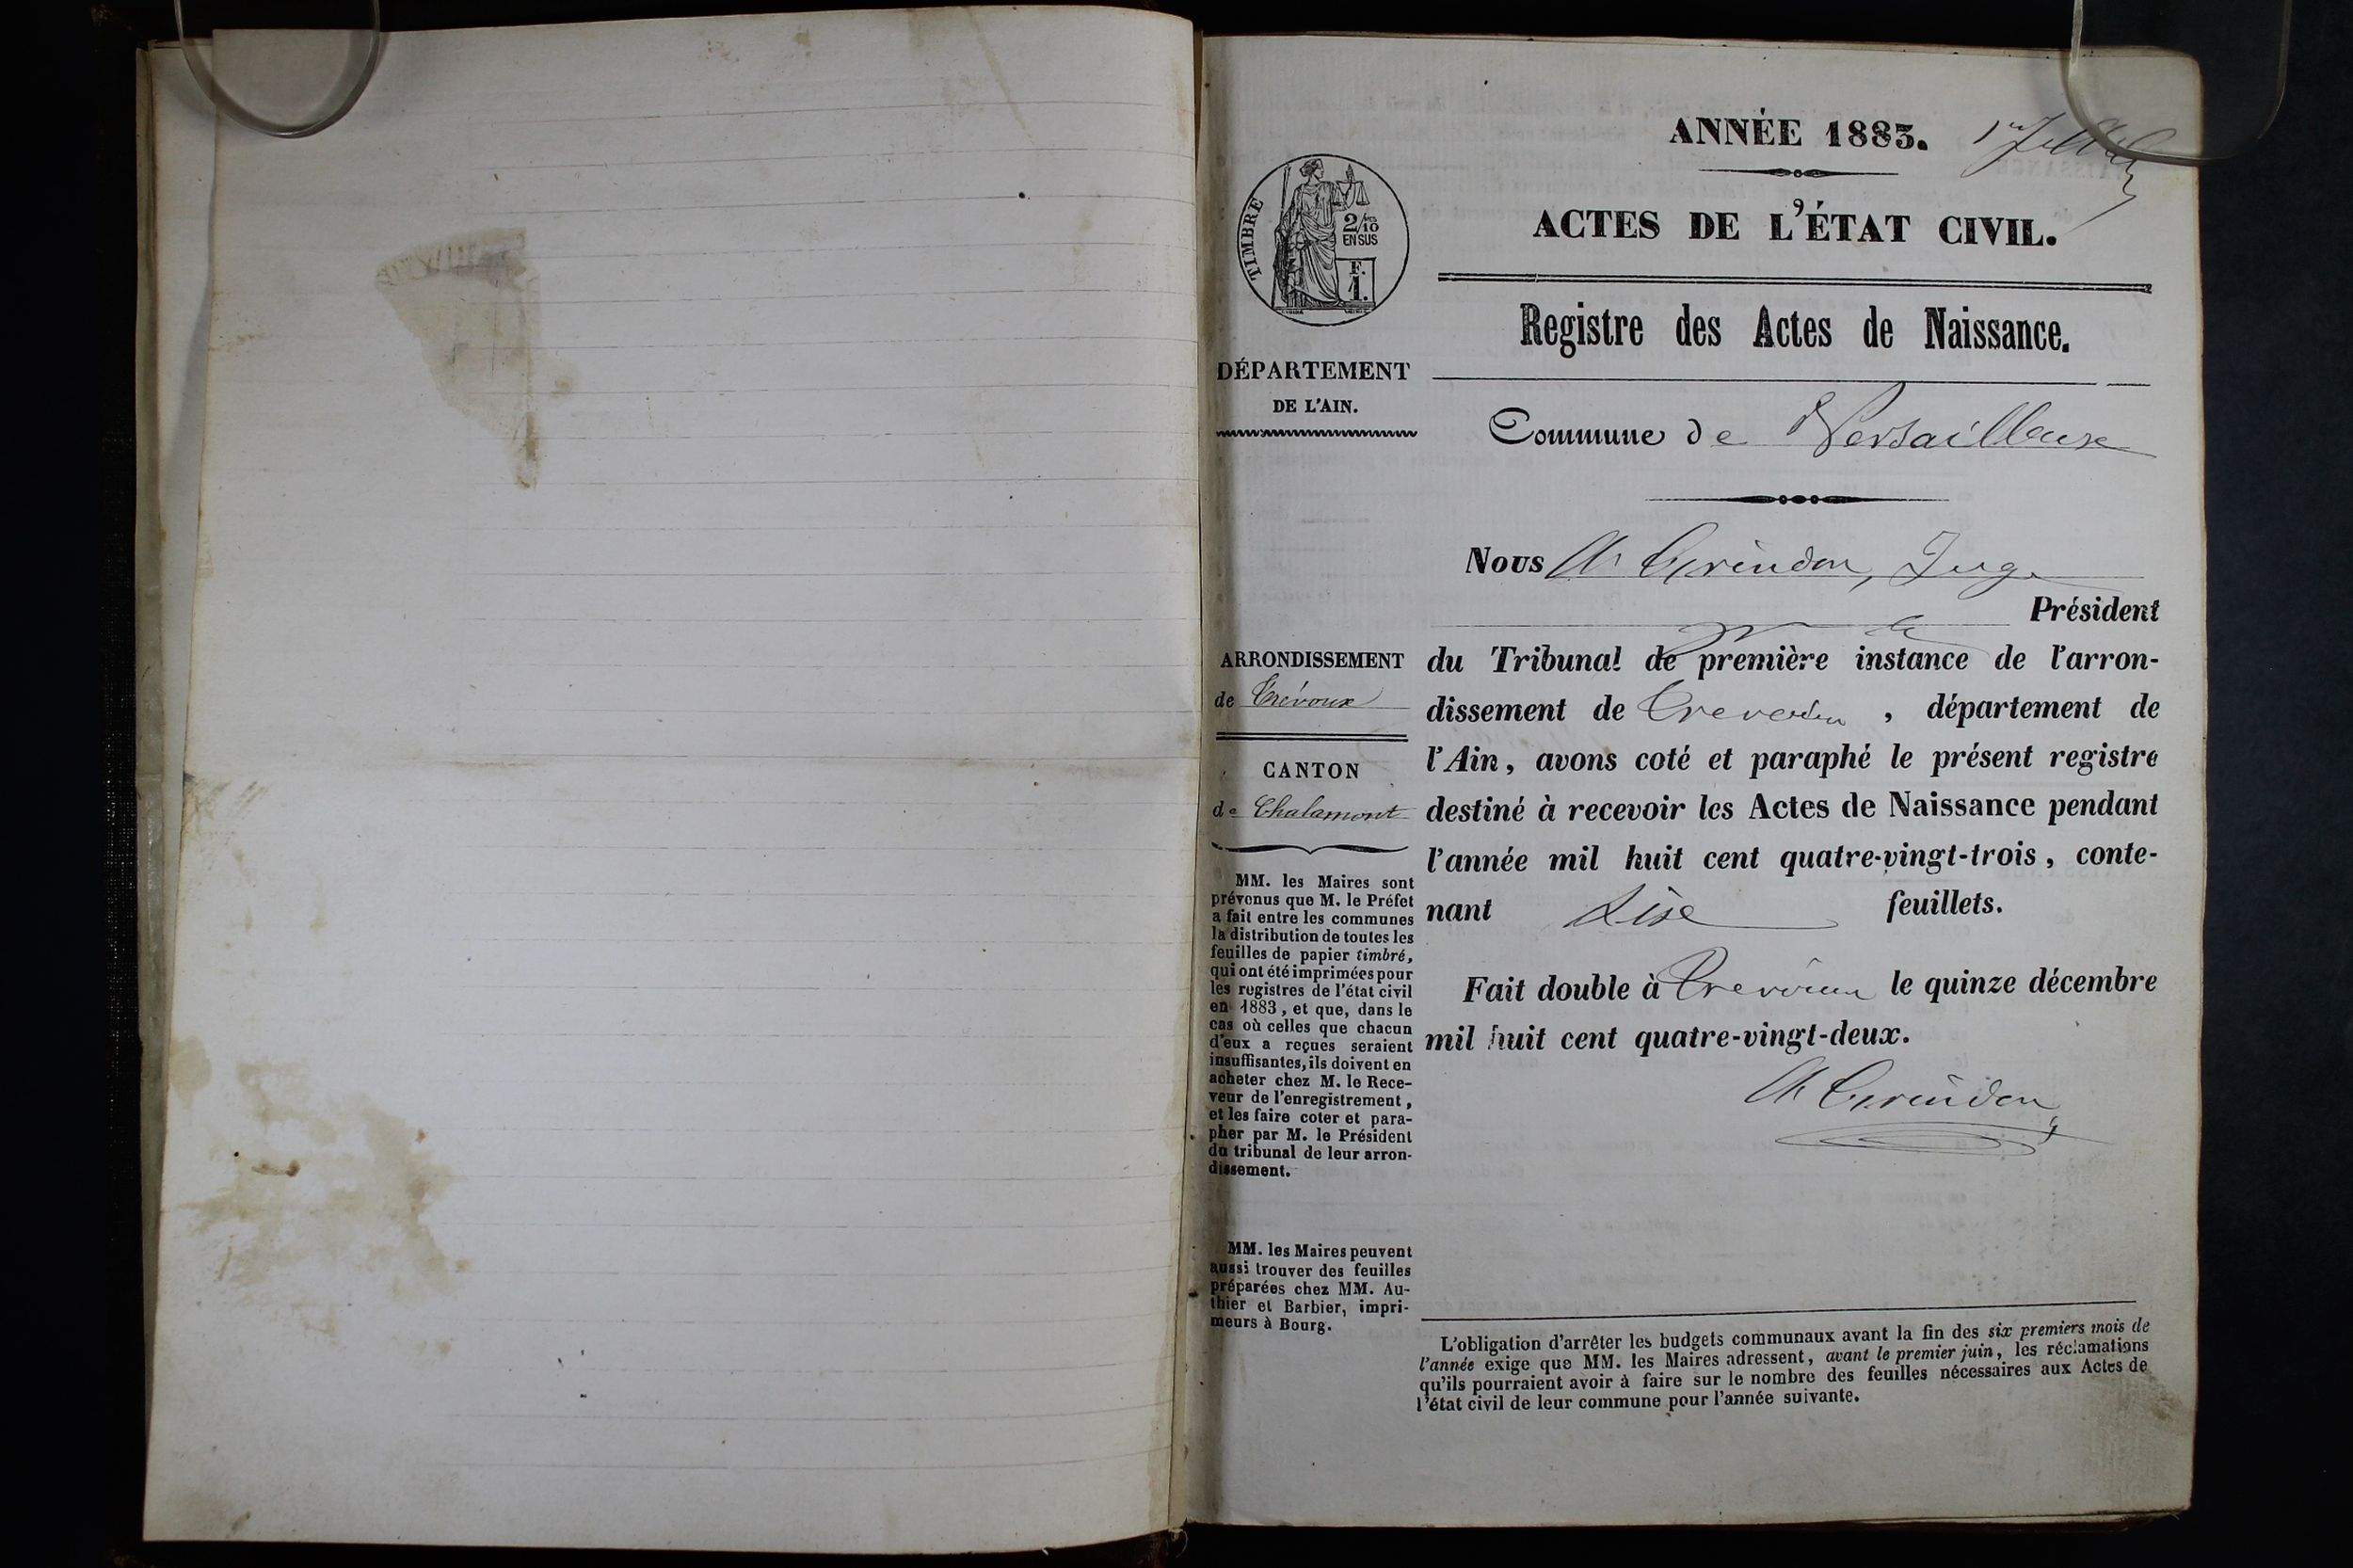 ANNÉE 1883.
TIMBRE
2/10
EN SUS
F.
1.
ACTES DE L'ÉTAT CIVIL.
Registre des Actes de Naissance.
DÉPARTEMENT
DE L'AIN.
Commune de Versailleux
Nous Ch Grindon, Juge
Président
ARRONDISSEMENT
de Trévoux
CANTON
de Chalamont
du Tribunal de première instance de l'arron-
dissement de Trevoux, département de
l'Ain, avons coté et paraphé le présent registre
destiné à recevoir les Actes de Naissance pendant
l'année mil huit cent quatre-vingt-trois, conte-
nant feuillets.
Fait double à Trevoux le quinze décembre
mil huit cent quatre-vingt-deux.
Ch Grindon
MM. les Maires sont
prévenus que M. le Préfet
a fait entre les communes
la distribution de toutes les
feuilles de papier timbré,
qui ont été imprimées pour
les registres de l'état civil
en 1883, et que, dans le
cas où celles que chacun
d'eux a reçues seraient
insuffisantes, ils doivent en
acheter chez M. le Rece-
veur de l'enregistrement,
et les faire coter et para-
pher par M. le Président
du tribunal de leur arron-
dissement.
MM. les Maires peuvent
aussi trouver des feuilles
préparées chez MM. Au-
thier et Barbier, impri-
meurs à Bourg.
L'obligation d'arrêter les budgets communaux avant la fin des six premiers mois de
l'année exige que MM. les Maires adressent, avant le premier juin, les réclamations
qu'ils pourraient avoir à faire sur le nombre des feuilles nécessaires aux Actes de
l'état civil de leur commune pour l'année suivante.